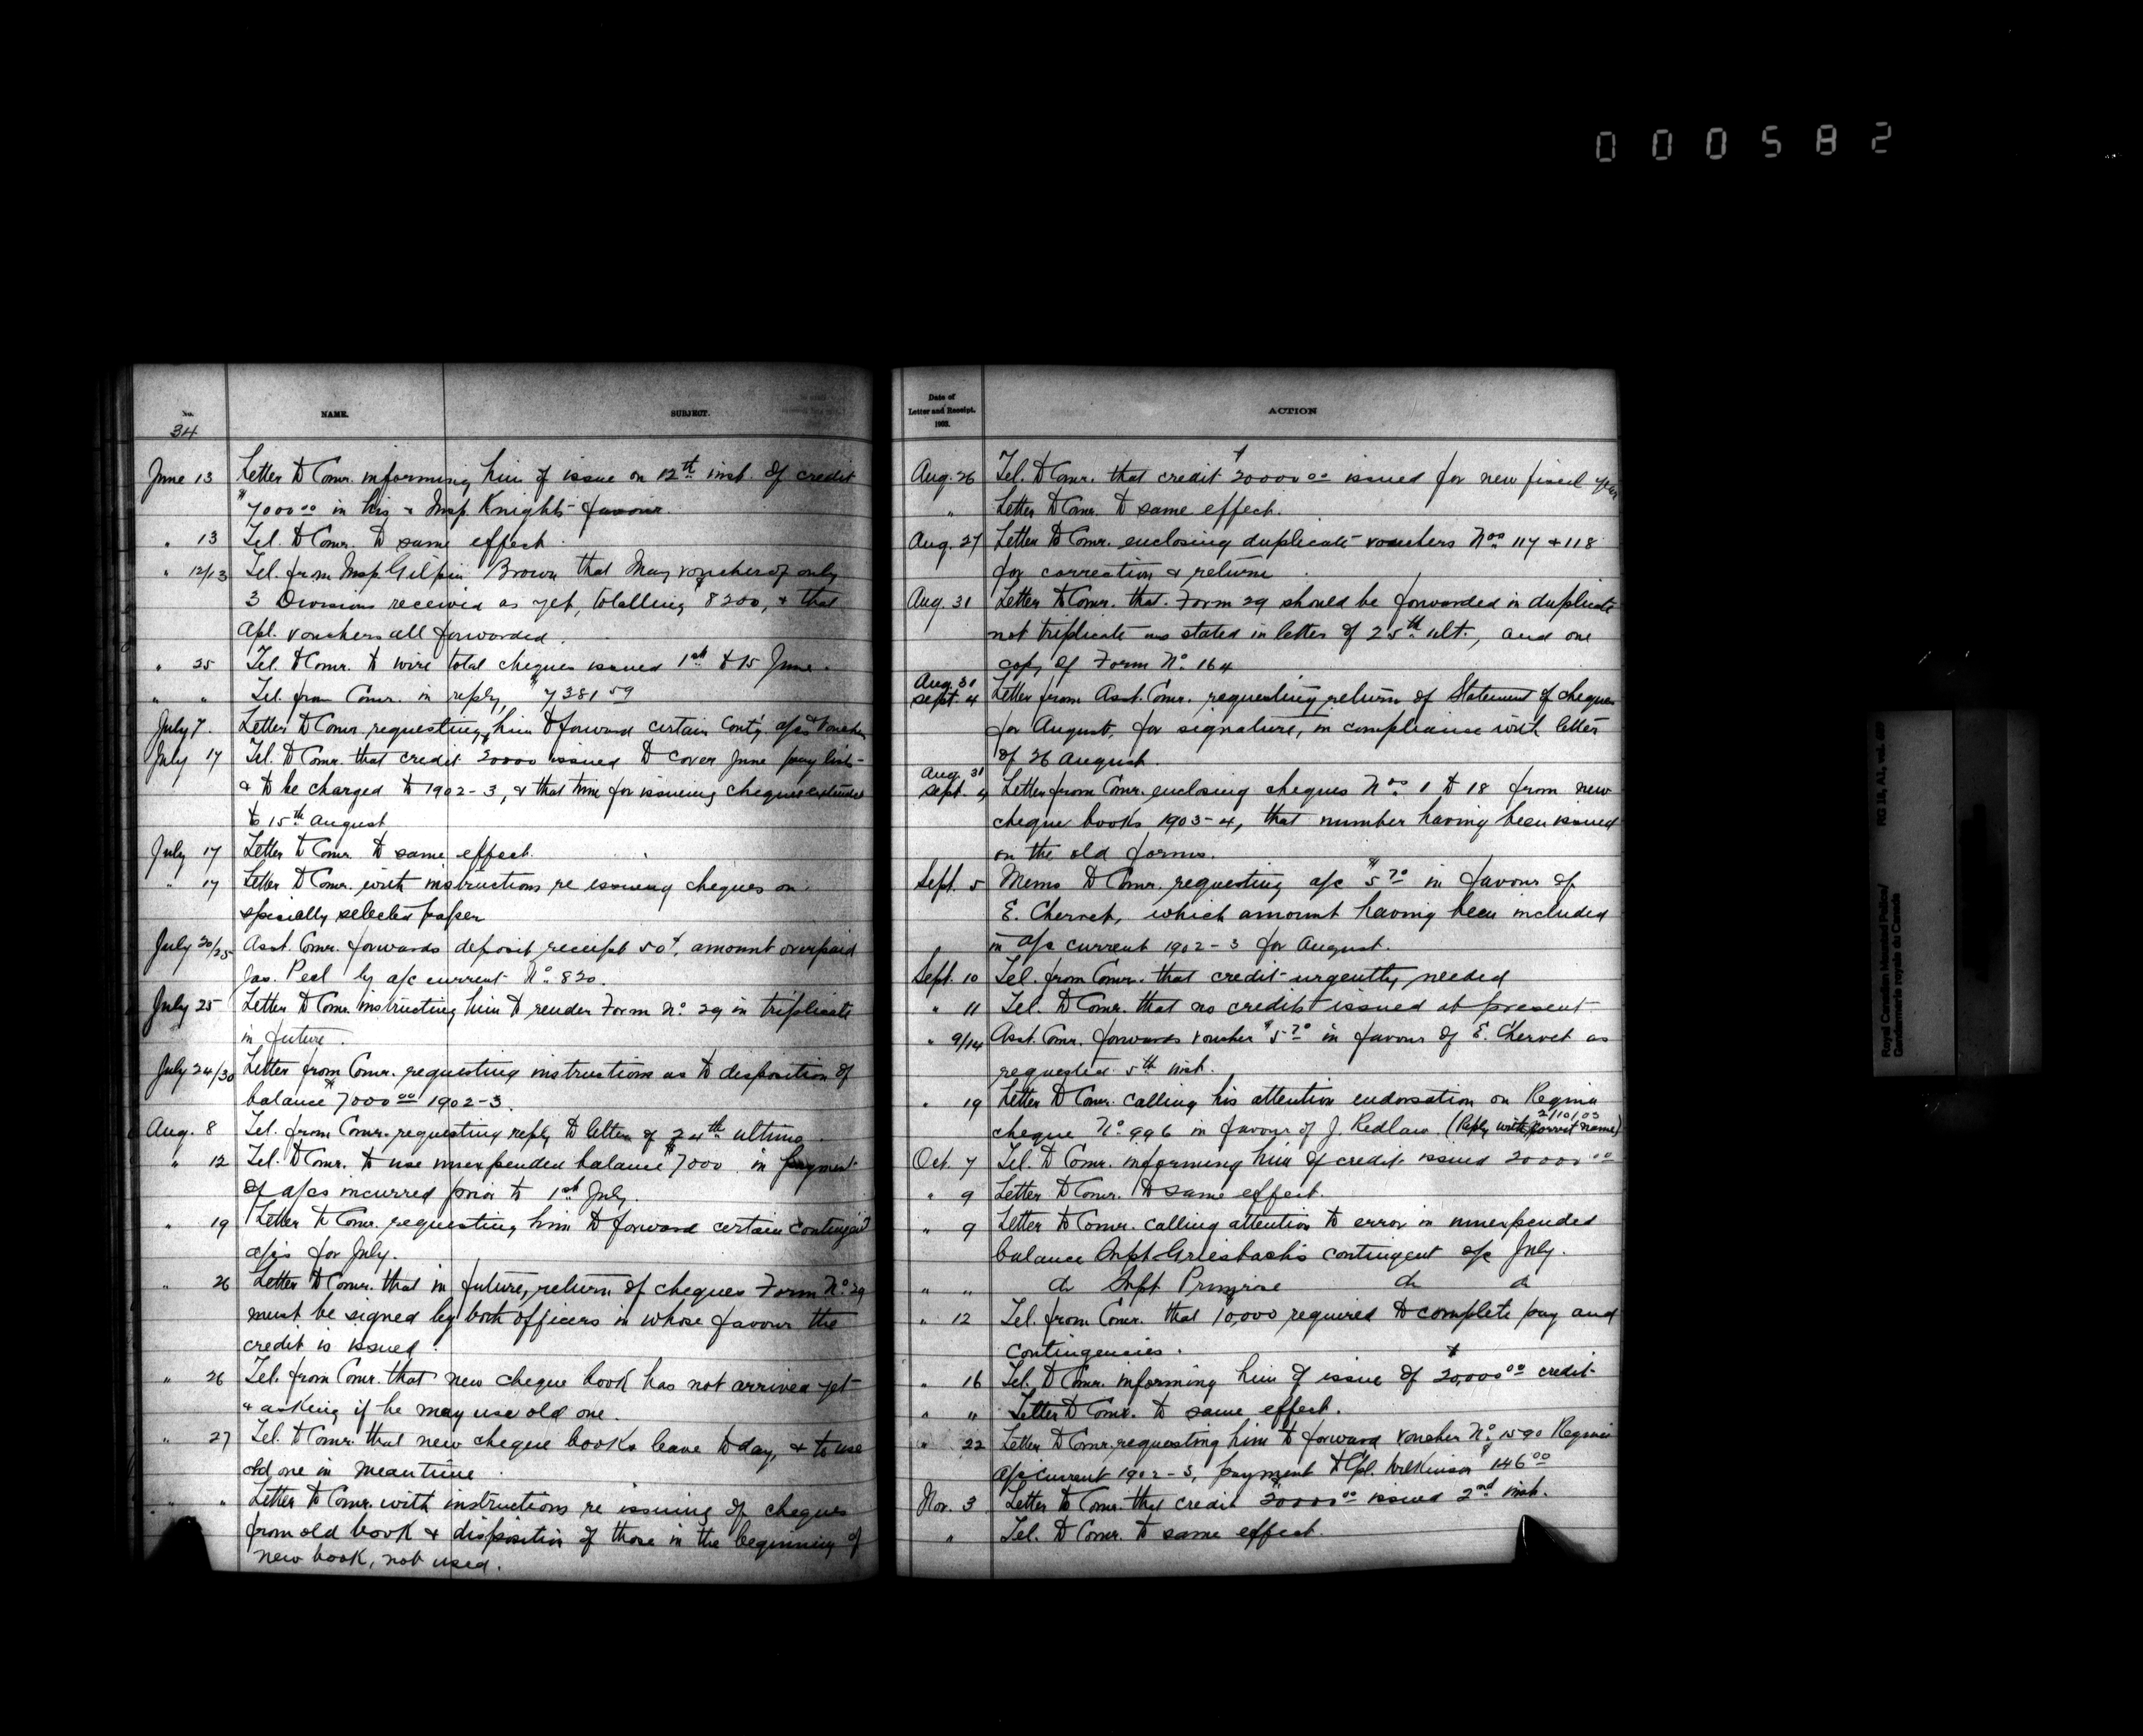 000582
No. NAME. SUBJECT.
34
June 13 Letter to Comr. informing him of issue on 12th inst. of credit
$7000.00 in his & Insp. Knight's favour.
" 13 Tel. to Comr. to same effect.
" 12/13 Tel. from Insp. Gilpin Brown that May vouchers of only
3 Divisions received as yet, totalling $8200, & that
Apl. vouchers all forwarded.
" 25 Tel. to Comr. to wire total cheques issued 1st to 15 June.
" " Tel. from Comr. in reply, $7381 59
July 7. Letter to Comr. requesting him to forward certain Conty. a/cs & vouchers
July 17 Tel. to Comr. that credit $20000 issued to cover June pay lists
& to be charged to 1902-3, & that time for issuing cheques extended
to 15th August
July 17 Letter to Comr. to same effect.
" 17 Letter to Comr. with instructions re issuing cheques on
specially selected paper
July 20/25 Asst. Comr. forwards deposit receipt 50¢, amount overpaid
Jas. Peel by a/c current No. 820.
July 25 Letter to Comr. instructing him to render Form No. 29 in triplicate
in future.
July 24/30 Letter from Comr. requesting instructions as to disposition of
balance $7000.00 1902-3.
Aug. 8 Tel. from Comr. requesting reply to letter of 24th ultimo.
" 12 Tel. to Comr. to use unexpended balance $7000 in payment
of a/cs incurred prior to 1st July.
" 19 Letter to Comr. requesting him to forward certain contingent
a/cs for July.
" 26 Letter to Comr. that in future, return of cheques Form No. 29
must be signed by both officers in whose favour the
credit is issued.
" 26 Tel. from Comr. that new cheque book has not arrived yet
& asking if he may use old one.
" 27 Tel. to Comr. that new cheque books leave to day, & to use
old one in meantime.
" " Letter to Comr. with instructions re issuing of cheques
from old book & disposition of those in the beginning of
new book, not used.
Date of
Letter and Receipt.
1903.
ACTION
Aug. 26 Tel. to Comr. that credit $20000 00 issued for new fiscal year
" Letter to Comr. to same effect.
Aug. 27 Letter to Comr. enclosing duplicate vouchers Nos. 117 & 118
for correction & return.
Aug. 31 Letter to Comr. that Form 29 should be forwarded in duplicate
not triplicate as stated in letter of 25th ult., and one
copy of Form No. 164
Aug. 31
Sept. 4 Letter from Asst. Comr. requesting return of Statement of cheques
for August, for signature, in compliance with letter
of 26 August.
Aug. 31
Sept. 4 Letter from Comr. enclosing cheques Nos 1 to 18 from new
cheque books 1903-4, that number having been issued
on the old forms.
Sept. 5 Memo to Comr. requesting a/c $5 70 in favour of
E. Chervet, which amount having been included
in a/c current 1902-3 for August.
Sept. 10 Tel. from Comr. that credit urgently needed
" 11 Tel. to Comr. that no credits issued at present
" 9/14 Asst. Comr. forwards voucher $5 70 in favour of E. Chervet as
requested 5th inst.
" 19 Letter to Comr. calling his attention endorsation on Regina
cheque No. 996 in favour of J. Redlaw. (Reply with correct name)
2/10/03
Oct. 7 Tel. to Comr. informing him of credit issued 20000 00
" 9 Letter to Comr. to same effect.
" 9 Letter to Comr. calling attention to error in unexpended
balance Supt. Griesbach's contingent a/c July.
" " do Supt. Primrose do do
" 12 Tel. from Comr. that $10,000 required to complete pay and
contingencies.
" 16 Tel. to Comr. informing him of issue of $20,000 00 credit
" " Letter to Comr. to same effect.
" 22 Letter to Comr. requesting him to forward voucher No. 1590 Regina
a/c current 1902-3, payment to Cpl. Wilkinson $146 00
Nov. 3 Letter to Comr. that credit $20000 00 issued 2nd inst.
" Tel. to Comr. to same effect.
Royal Canadian Mounted Police/
Gendarmerie royale du Canada
RG 18, A1, vol.